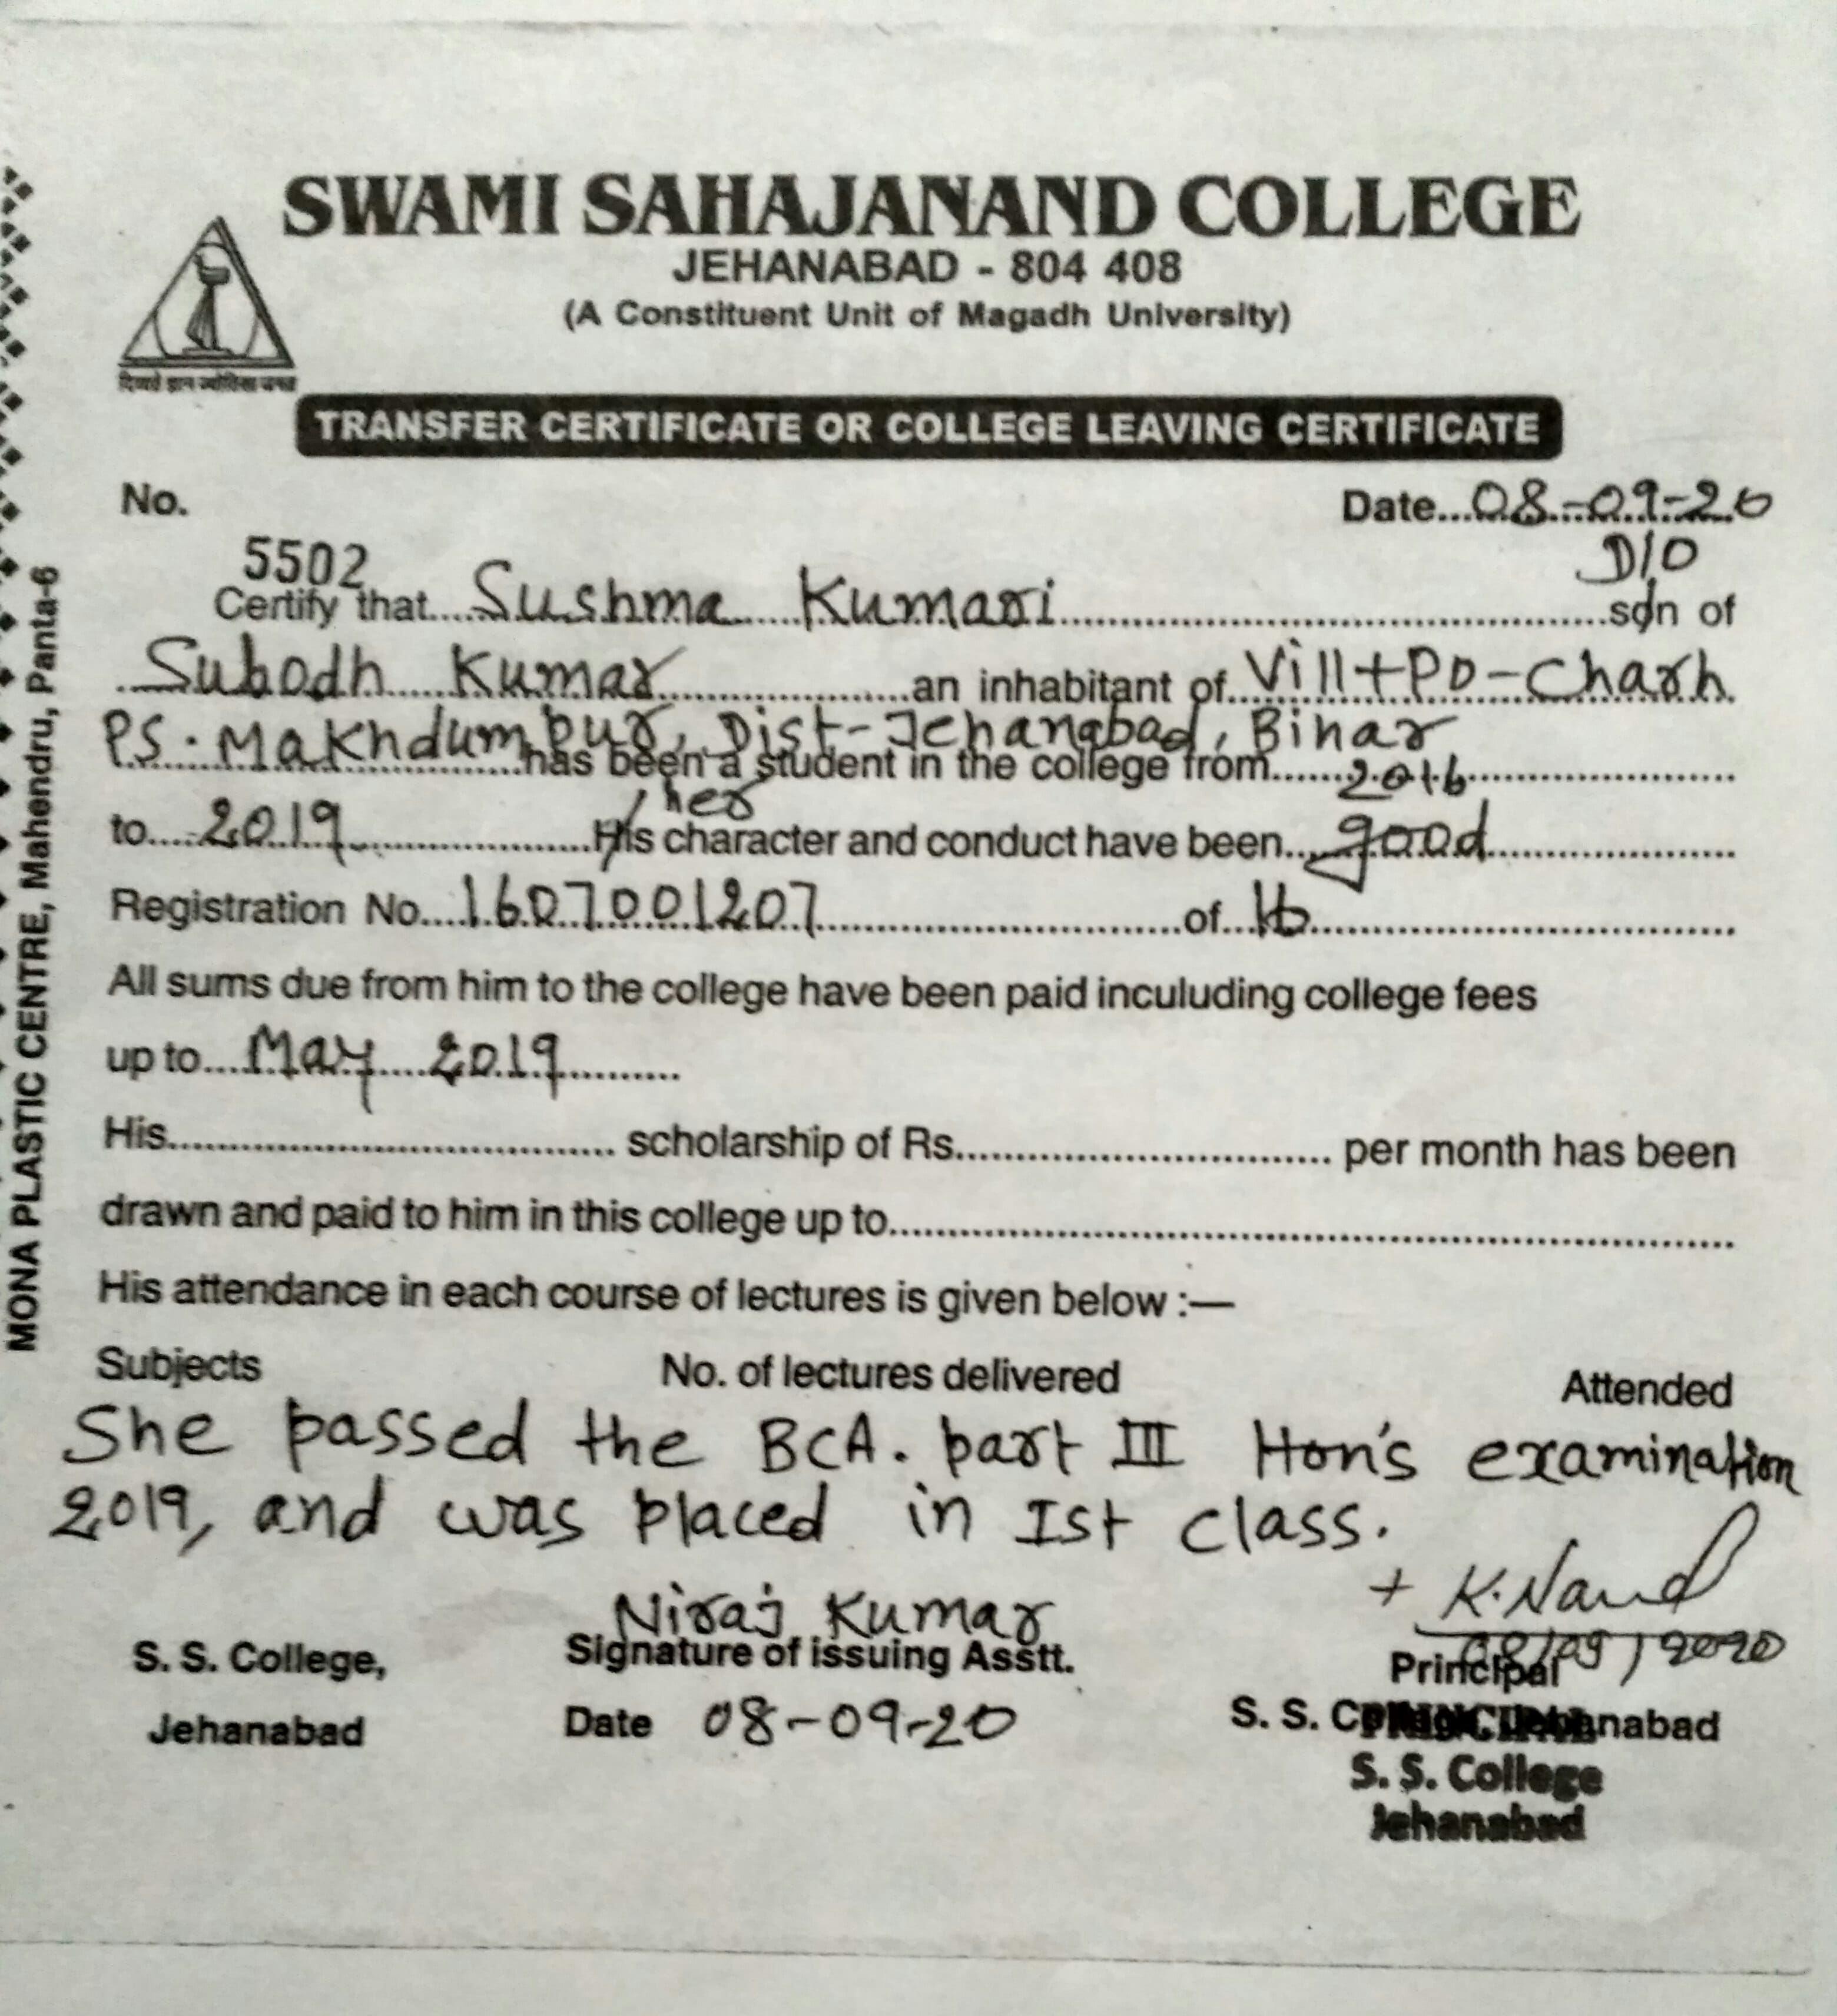 SWAMI SAHAJANAND COLLEGE
JEHANABAD - 804 408
(A Constituent Unit of Magadh University)
TRANSFER CERTIFICATE OR COLLEGE LEAVING CERTIFICATE
No. Date...08-09-20
5502 D/O
Certify that....Sushma Kumari..........son of
Subodh Kumar..........an inhabitant of..Vill+PO-Charh
PS. Makhdumpur, Dist-Jehanabad, Bihar
..........has been a student in the college from.......2016..........
her
to....2019..........His character and conduct have been...good..........
Registration No....1607001207..........of...16..........
All sums due from him to the college have been paid inculuding college fees
up to....May 2019..........
His.......... scholarship of Rs.......... per month has been
drawn and paid to him in this college up to..........
His attendance in each course of lectures is given below :—
Subjects No. of lectures delivered Attended
She passed the BCA. part III Hon's examination
2019, and was placed in Ist class.
+ K.Nand
Niraj Kumar 08/09/2020
S. S. College, Signature of issuing Asstt. Principal
Jehanabad Date 08-09-20 S. S. College, Jehanabad
PRINCIPAL
S. S. College
Jehanabad
MONA PLASTIC CENTRE, Mahendru, Panta-6